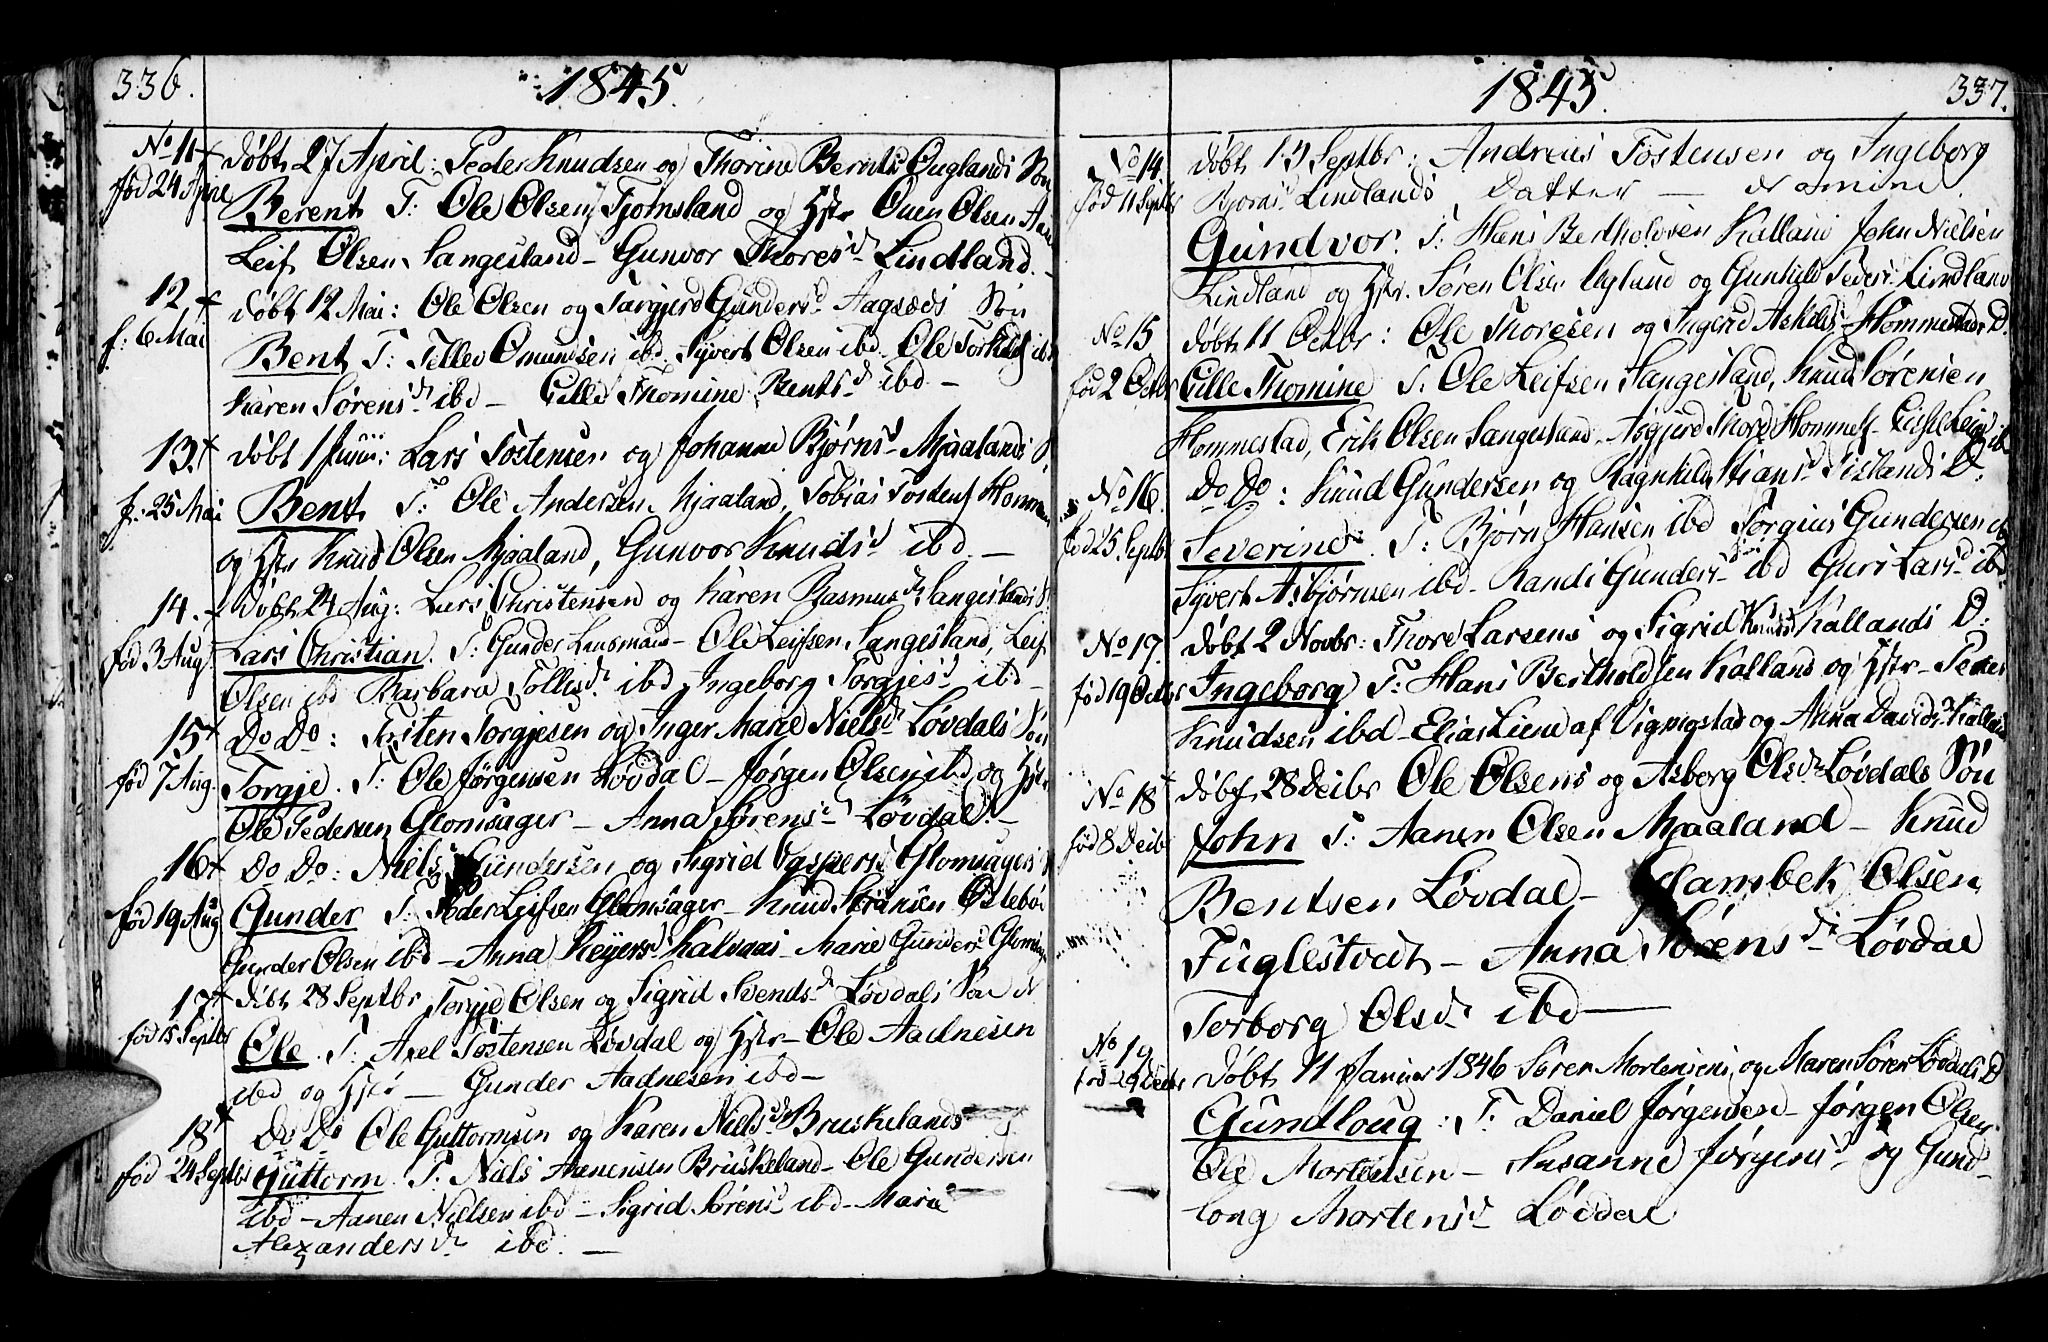 336.
1845.
No 11
født 24 April
døbt 27 April: Peder Knudsen og Thorine Bernts Øuglands Søn
Berent T: Ole Olsen Tjomsland og Hstr Ouen Olsen
Leif Olsen Sangesland – Gunvor Thoresd. Lindland. –
12
f: 6 Mai
døbt 12 Mai: Ole Olsen og Targjerd Gundersd. Aagsæds Søn
Bent T: Tellev Omundsen ibd. Syvert Olsen ibd – Ole Torkels ibd
Karen Sørensd. ibd – Cille Thomine Bentsd. ibd –
13.
f. 25 Mai
døbt 1 Juni: Lars Tostensen og Johanne Bjørnsd. Mjaalands S.
Bent T: Ole Andersen Mjaaland, Tobias Tostens Homme
og Hstr Knud Olsen Mjaaland, Gunvor Knudsd. ibd. –
14.
fød 3 Aug.
døbt 24 Aug: Lars Christensen og Karen Rasmusd. Sangeslands S.
Lars Christian. T: Gunder Linsmand – Ole Leifsen Sangesland, Leif
Olsen ibd Barbara Tollisd. ibd Ingeborg Torgjesd. ibd –
15
fød 7 Aug.
Do Do: Tosten Torgjesen og Inger Marie Nielsd. Løvdals Søn
Torgje. T: Ole Jørgensen Løvdal – Jørgen Olsen ibd og Hstr
Ole Pedersen Glomsager – Anna Sørensd. Løvdal. –
16
fød 19 Aug
Do Do: Niels Gundersen og Sigrid Caspersd. Glomsagers
Gunder T. Peder Leifsen Glomsager – Knud Sørensen Østebø
Gunder Olsen ibd – Anna Reyersd. Kalvaas – Marie Gundersd. Glomsag
17
fød 15 Septbr
døbt 28 Septbr Torgje Olsen og Sigrid Svendsd. Løvdals Søn
Ole. T: Axel Tostensen Løvdal og Hstr – Ole Aadnesen
ibd og Hstr – Gunder Aadnesen ibd –
18
fød 24 Septbr
Do Do Ole Guttormsen og Karen Nielsd. Bruskelands
Guttorm. T. Niels Aanensen Bruskeland – Ole Gundersen
ibd – Aanen Nielsen ibd – Sigrid Sørensd. ibd – Marie
Alexandersd. ibd. –
1845.
337.
No 14.
fød 11 Septbr
døbt Septbr: Andreas Tostensen og Ingeborg
Bjørnsd. Lindlands Datter –
Gundvor. T: Hans Bertholdsen Kalland John Nielsen
Lindland og Hstr. Søren Olsen Uglund og Gunhild Pedersd. Lindland
No 15
fød 2 Octbr
døbt 11 Octbr: Ole Thoresen og Ingerid Askildsd. Hommestads D.
Cille Thomine T. Ole Leifsen Sangesland, Knud Sørensen
Hommestad, Erik Olsen Sangesland – Asgjerd Thoresd. Hommest –
No 16.
fød 25. Septbr
Do Do: Knud Gundersen og Ragnhild Stiansd. D.
Severine. T: Bjørn Hansen ibd Torgius Gundersen ibd
Syvert Asbjørnsen ibd – Randi Gundersd. ibd Guri Larsd. ibd
No 17.
fød 19 Octbr
døbt 2 Novbr: Thore Larsens og Sigrid Knudsd. Kallands D:
Ingeborg T: Hans Bertholdsen Kalland og Hstr – Peder
Knudsen ibd – Elias Liene af Vigmostad og Anna Davidsd. Kalland
No 18
fød 8 Decbr
døbt 28 Decbr Ole Olsens og Asborg Olsd. Løvdals Søn
John T: Aanen Olsen Mjaaland – Knud
Bentsen Løvdal – Flambek Olsen
Fuglestvedt – Anna Sørensd. Løvdal
Torborg Olsd. ibd –
No 19
fød 29 Decbr
døbt 11 Januar 1846 Søren Mortensens og Maren Søren Løvdals D
Gundloug: T: Daniel Jørgensen – Jørgen Olsen
Ole Mortensen – Susanne Jørgensd. og Gund-
loug Mortensd. Løvdal